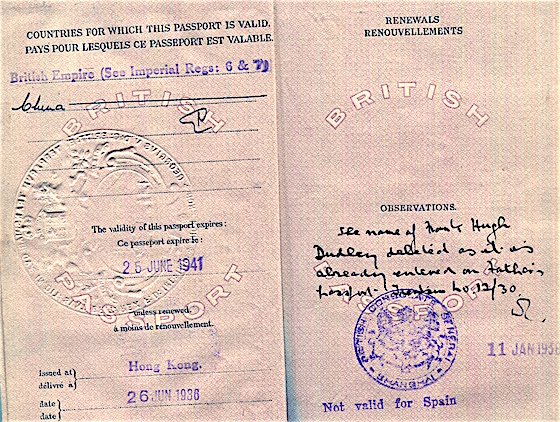 COUNTRIES FOR WHICH THIS PASSPORT IS VALID.
PAYS POUR LESQUELS CE PASSEPORT EST VALABLE.
British Empire (See Imperial Regs: 6 & 7)
China
BRITISH
The validity of this passport expires:
Ce passeport expire le:
26 JUNE 1941
PASSPORT
unless renewed.
à moins de renouvellement.
Issued at
délivré a
Hong Kong.
date
date
26 JUN 1936
RENEWALS
RENOUVELLEMENTS
BRITISH
OBSERVATIONS.
name of Frank Hugh
Dudley deleted as it is
already entered on Father's
passport No. 12/30.
BRITISH CONSULATE GENERAL
SHANGHAI
11 JAN 193
Not valid for Spain